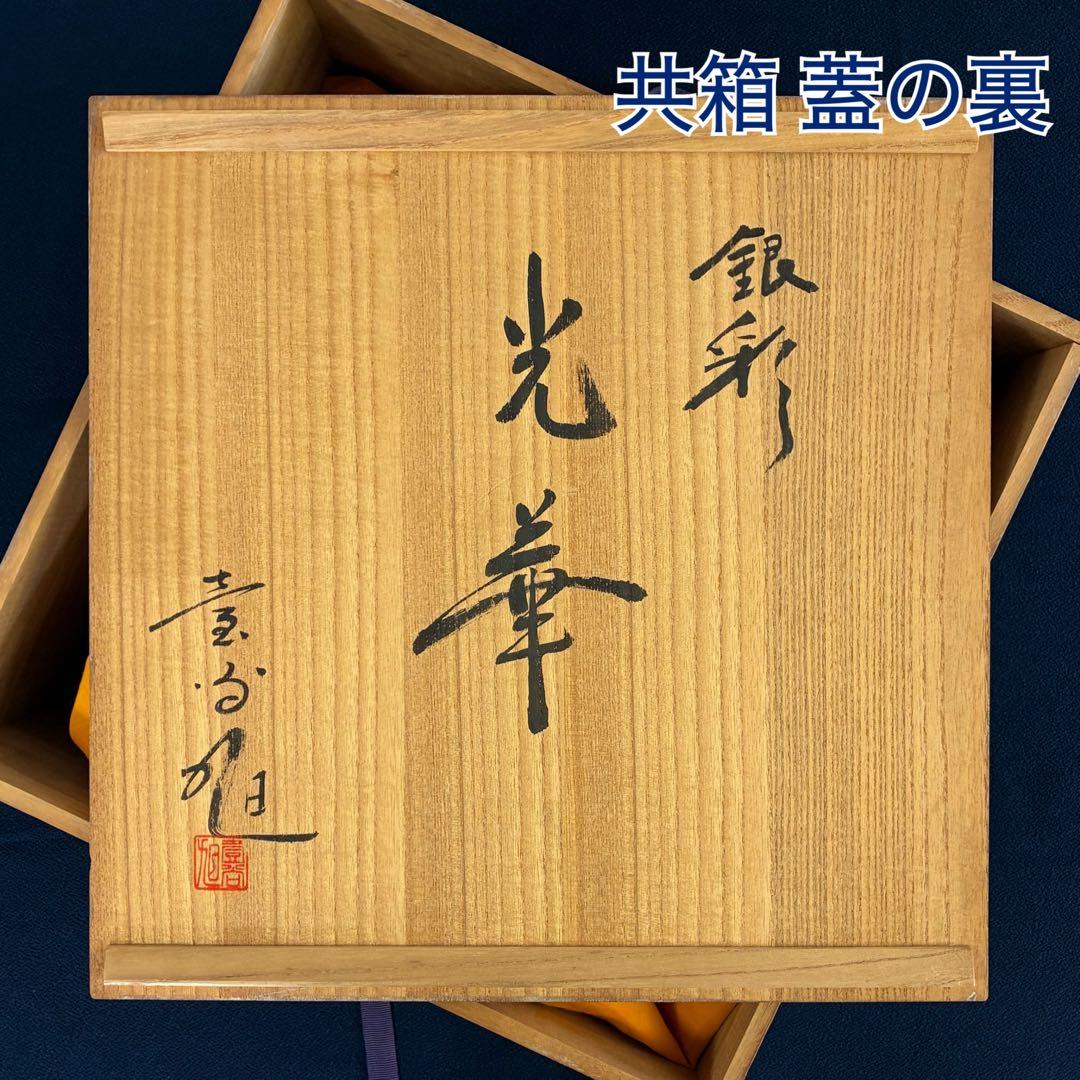 共箱 蓋の裏
銀彩
光華
旭